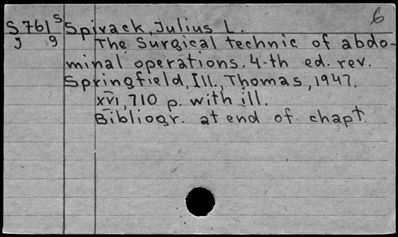 6
S761 S Spivack, Julius L.
J 9 The Surgical technic of abdo-
minal operations. 4-th ed. rev.
Springfield, Ill., Thomas, 1947.
XVI, 710 p. with ill.
Bibliogr. at end of chapt.